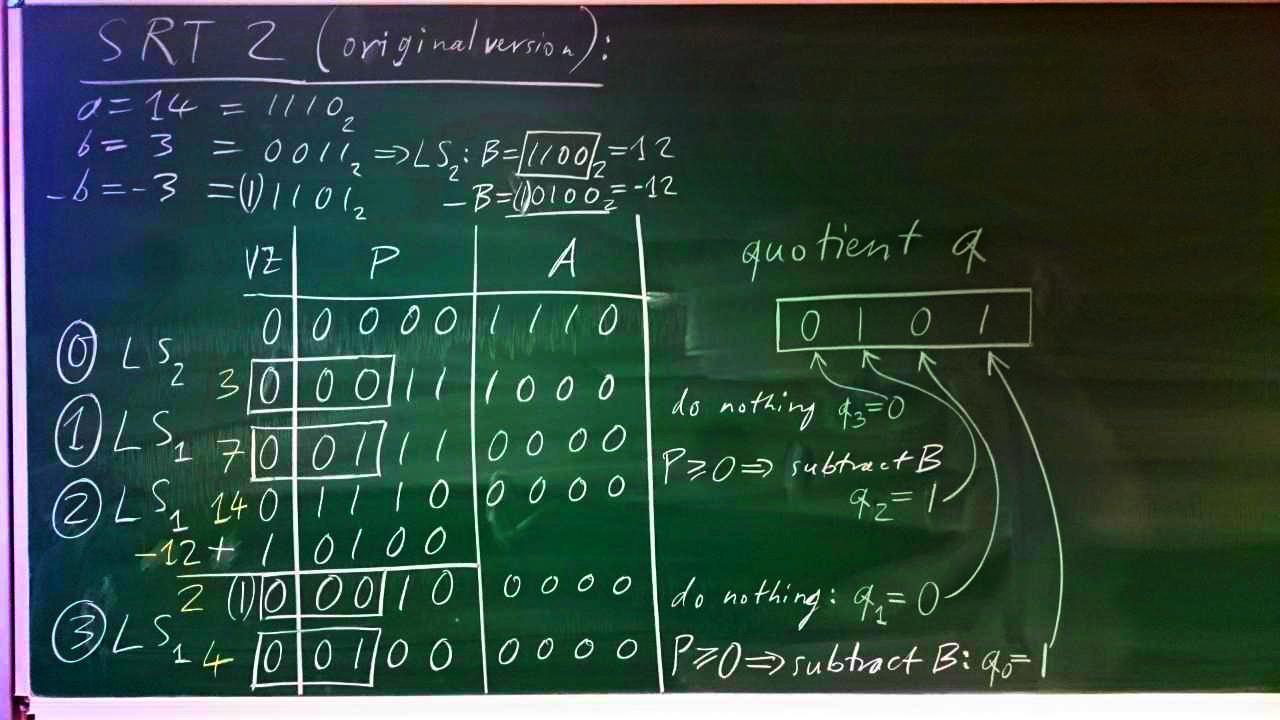 SRT 2 (original version):
a = 14 = 1110₂
b = 3 = 0011₂ ⇒ LS₂: B = 1100₂ = 12
-b = -3 = (1)1101₂ -B = (1)0100₂ = -12
VZ P A
0 0 0 0 0 1 1 1 0
⓪ LS₂ 3 0 0 0 1 1 1 0 0 0
① LS₁ 7 0 0 1 1 1 0 0 0 0
② LS₁ 14 0 1 1 1 0 0 0 0 0
-12 + 1 0 1 0 0
2 (1) 0 0 0 1 0 0 0 0 0
③ LS₁ 4 0 0 1 0 0 0 0 0 0
quotient q
0 1 0 1
do nothing q₃ = 0
P ≥ 0 ⇒ subtract B
q₂ = 1
do nothing: q₁ = 0
P ≥ 0 ⇒ subtract B: q₀ = 1